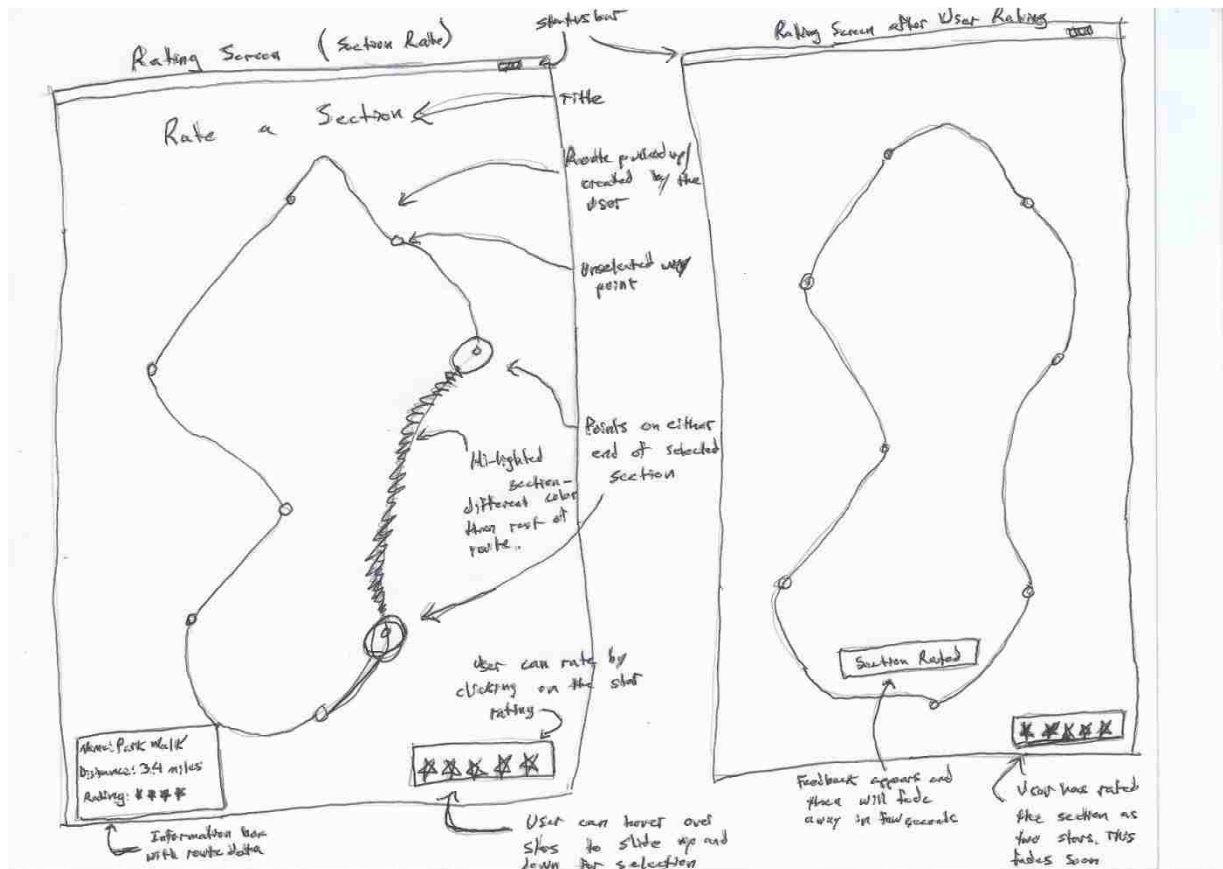 Rating Screen (Section Rate)
status bar
Rate a Section
Title
Route pulled up/
created by the
User
Unselected way
point
Points on either
end of selected
section
Hi-lighted
section-
different color
than rest of
route.
User can rate by
clicking on the star
rating
Name: Park Walk
Distance: 3.4 miles
Rating: ****
Information box
with route data
User can hover over
stars to slide up and
down for selection
Rating Screen after User Rating
Section Rated
Feedback appears and
then will fade
away in few seconds
User has rated
the section as
two stars. This
fades soon